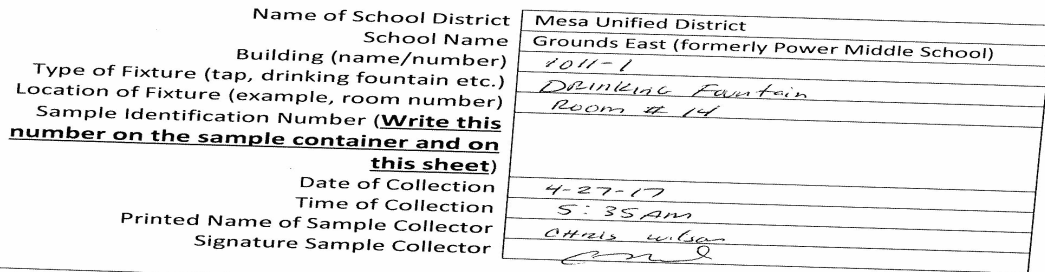 Name of School District Mesa Unified District
School Name Grounds East (formerly Power Middle School)
Building (name/number) 1011-1
Type of Fixture (tap, drinking fountain etc.) Drinking Fountain
Location of Fixture (example, room number) Room # 14
Sample Identification Number (Write this
number on the sample container and on
this sheet)
Date of Collection 4-27-17
Time of Collection 5:35 AM
Printed Name of Sample Collector Chris Wilson
Signature Sample Collector